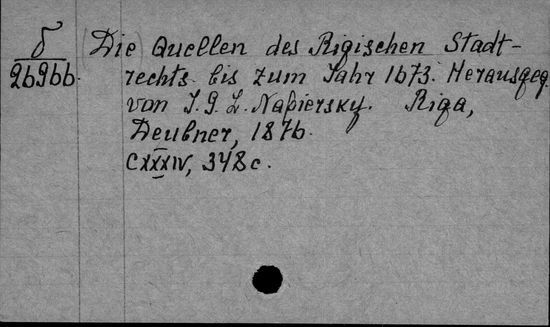 δ (Die) Quellen des Rigischen Stadt-
26966 rechts bis zum Jahr 1673. Herausgeg.
von J. G. L. Napiersky. Riga,
Deubner, 1876.
CXXXIV, 348 c.